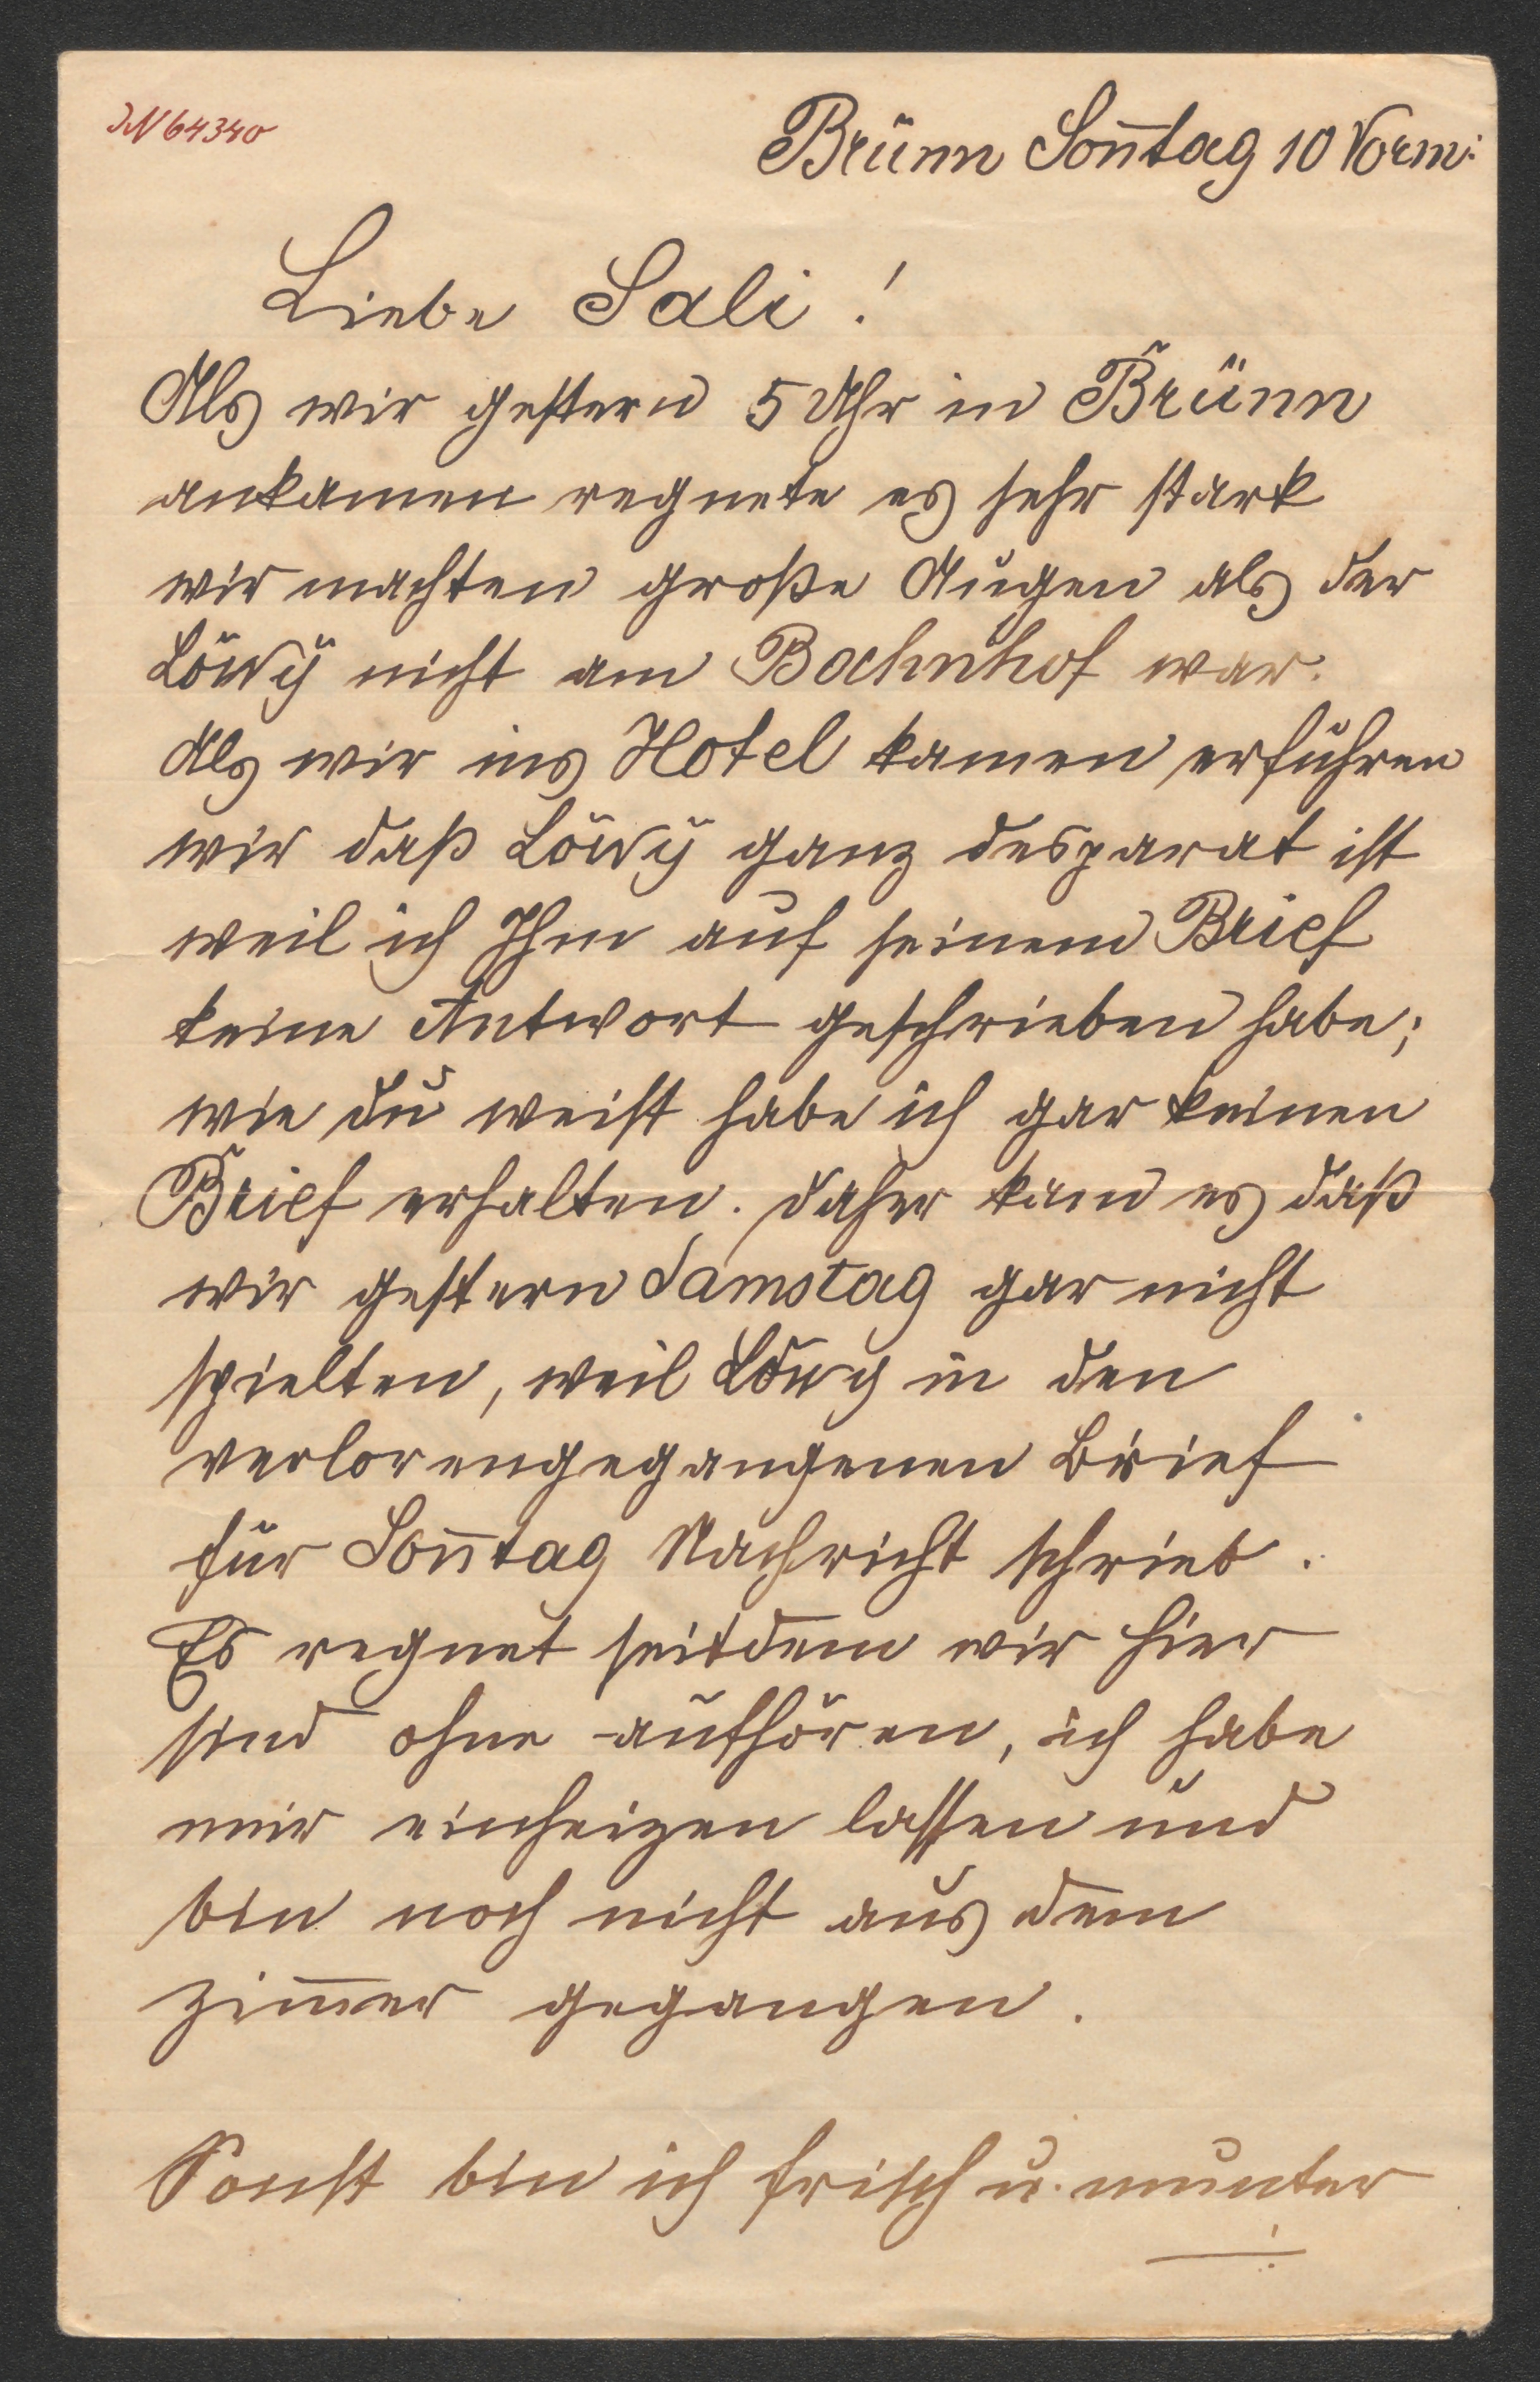 IN 64340
Brünn Son̄tag 10 Vorm:
Liebe Sali!
Als wir gestern 5 Uhr in Brünn
ankamen regnete es sehr stark
wir machten große Augen als der
Löwÿ nicht am Bachnhof war.
Als wir ins Hotel kamen erfuhren
wir daß Löwÿ ganz desparat ist
weil ich Ihm auf seinem Brief
keine Antwort geschrieben habe;
wie du weist habe ich gar keinen
Brief erhalten. daher kam es daß
wir gestern Samstag gar nicht
spielten, weil Löwy in den
verlorengegangenen Brief
für Son̄tag Nachricht schrieb.
Es regnet seitdem wir hier
sind ohne aufhören, ich habe
mir einheizen lassen und
bin noch nicht aus dem
Zim̄er gegangen.
Sonst bin ich frisch u. munter